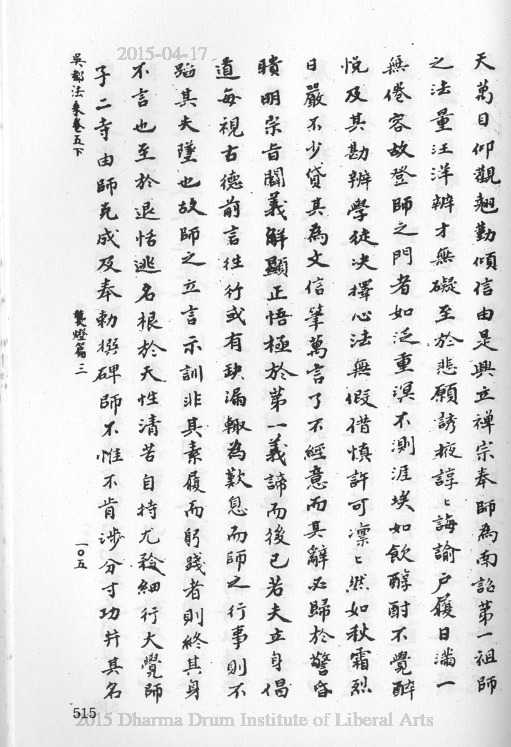 2015-04-17
天萬目仰觀翹勤傾信由是興立禅宗奉師為南詔第一祖師
之法量汪洋辨才無礙至於悲願誘掖諄〻誨諭戶履日滿一
無倦容故登師之門者如泛重溟不測涯涘如飲醇酎不覺醉
悅及其勘辨學徒决擇心法無假借慎許可凛〻然如秋霜烈
日嚴不少貸其為文信筆萬言了不經意而其辭必歸於警昏
聵明宗旨闢義解顯正悟極於第一義諦而後已若夫立身倡
道每視古德前言往行或有缺漏輙為歎息而師之行事則不
蹈其失墜也故師之立言示訓非其素履而躬踐者則終其身
不言也至於退恬逃名根於天性清苦自持尤矜細行大覺師
子二寺由師克成及奉勅撰碑師不惟不肯涉分寸功并其名
吳都法乘卷五下
襲燈篇三
一〇五
515
2015 Dharma Drum Institute of Liberal Arts